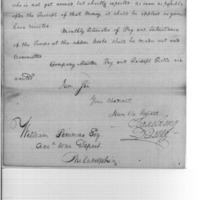 who is not yet armed but shortly expected as soon as possible
after the Receipt of that Money, it shall be applied as greatest
have resulted.
Monthly Estimates of Pay and Subsistence
of the Troops at the upper Posts shall be made out and
Committed
Company Muster Pay and Receipt Rolls are
wanted
I am Sir
Your Obedient
Humble Servt
William Simmons Esq.
Acct War Depart.
Philadelphia